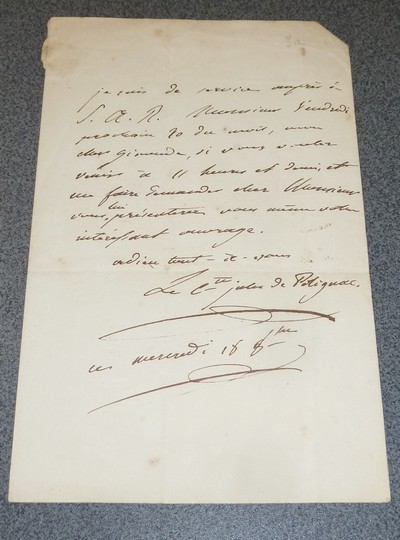 je suis de service auprès de
S. A. R. Monsieur Vendredi
prochain 20 du mois, mon
cher Gironde, si vous voulez
venir à 11 heures et demie, et
me faire demander chez Monsieur
vous lui présenterez vous même votre
intéressant ouvrage.
adieu tout-à-vous
Le Cte jules de Polignac.
ce mercredi 18 8bre